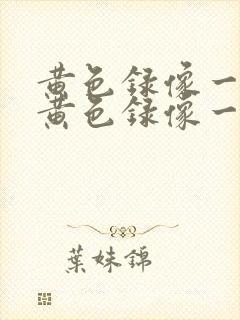 黄色録像一
黄色録像一
葉妹錦